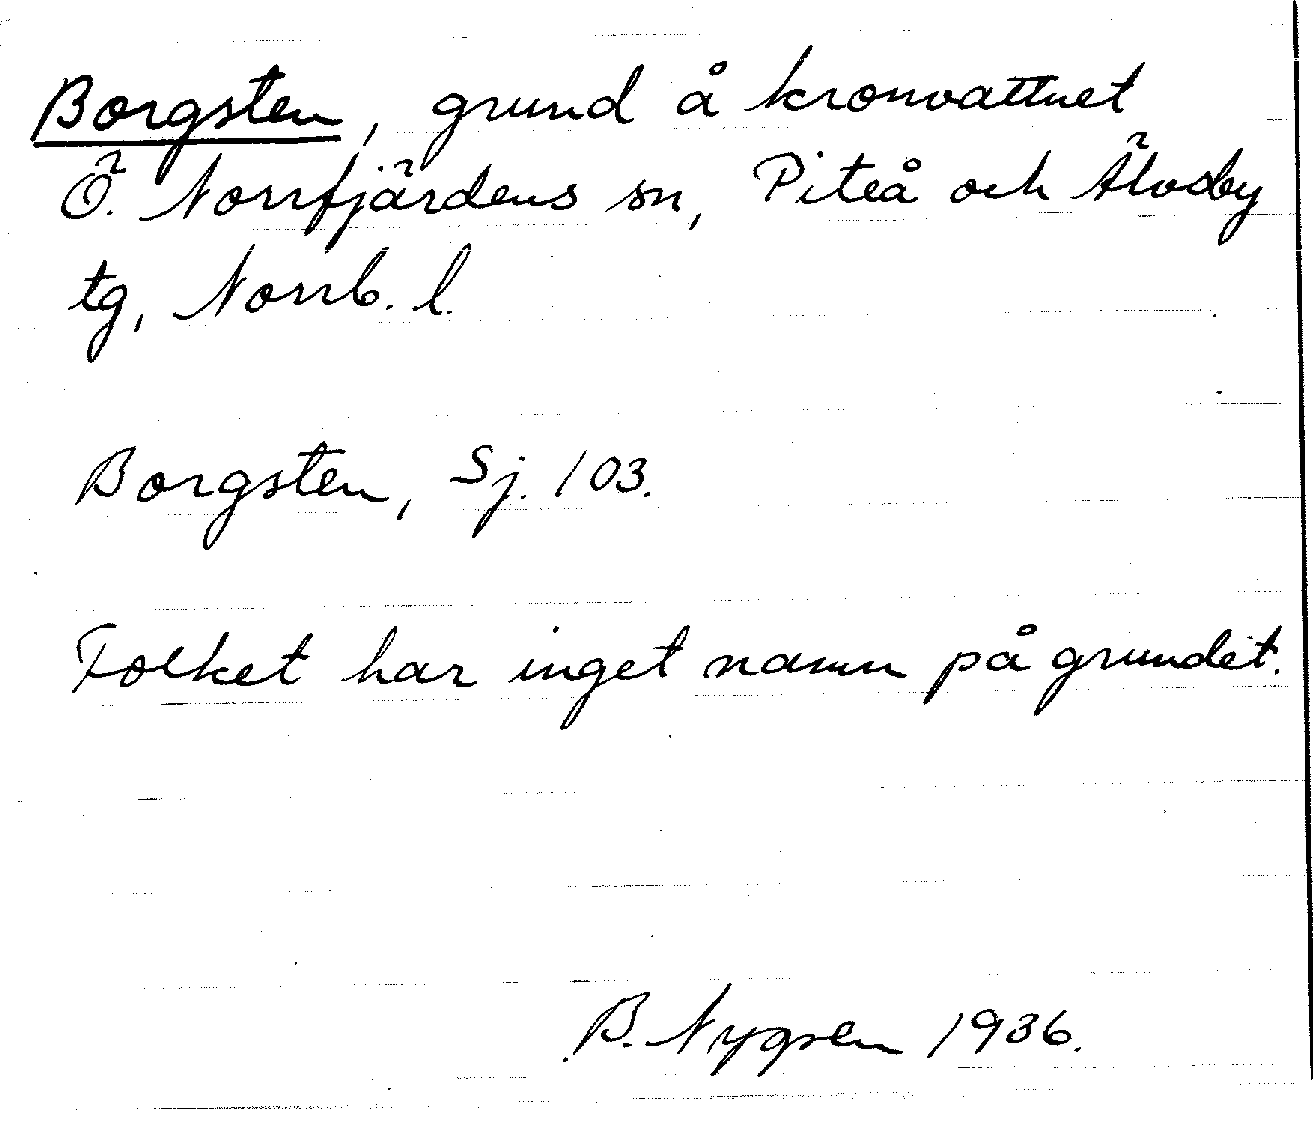 Borgsten, grund å kronvattnet
Ö. Norrfjärdens sn, Piteå och Älvsby
tg, Norrb. l.
Borgsten, Sj. 103.
Folket har inget namn på grundet.
B. Nygren 1936.